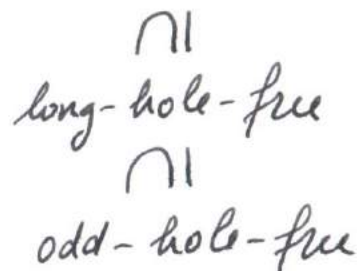 ∩|
long-hole-free
∩|
odd-hole-free